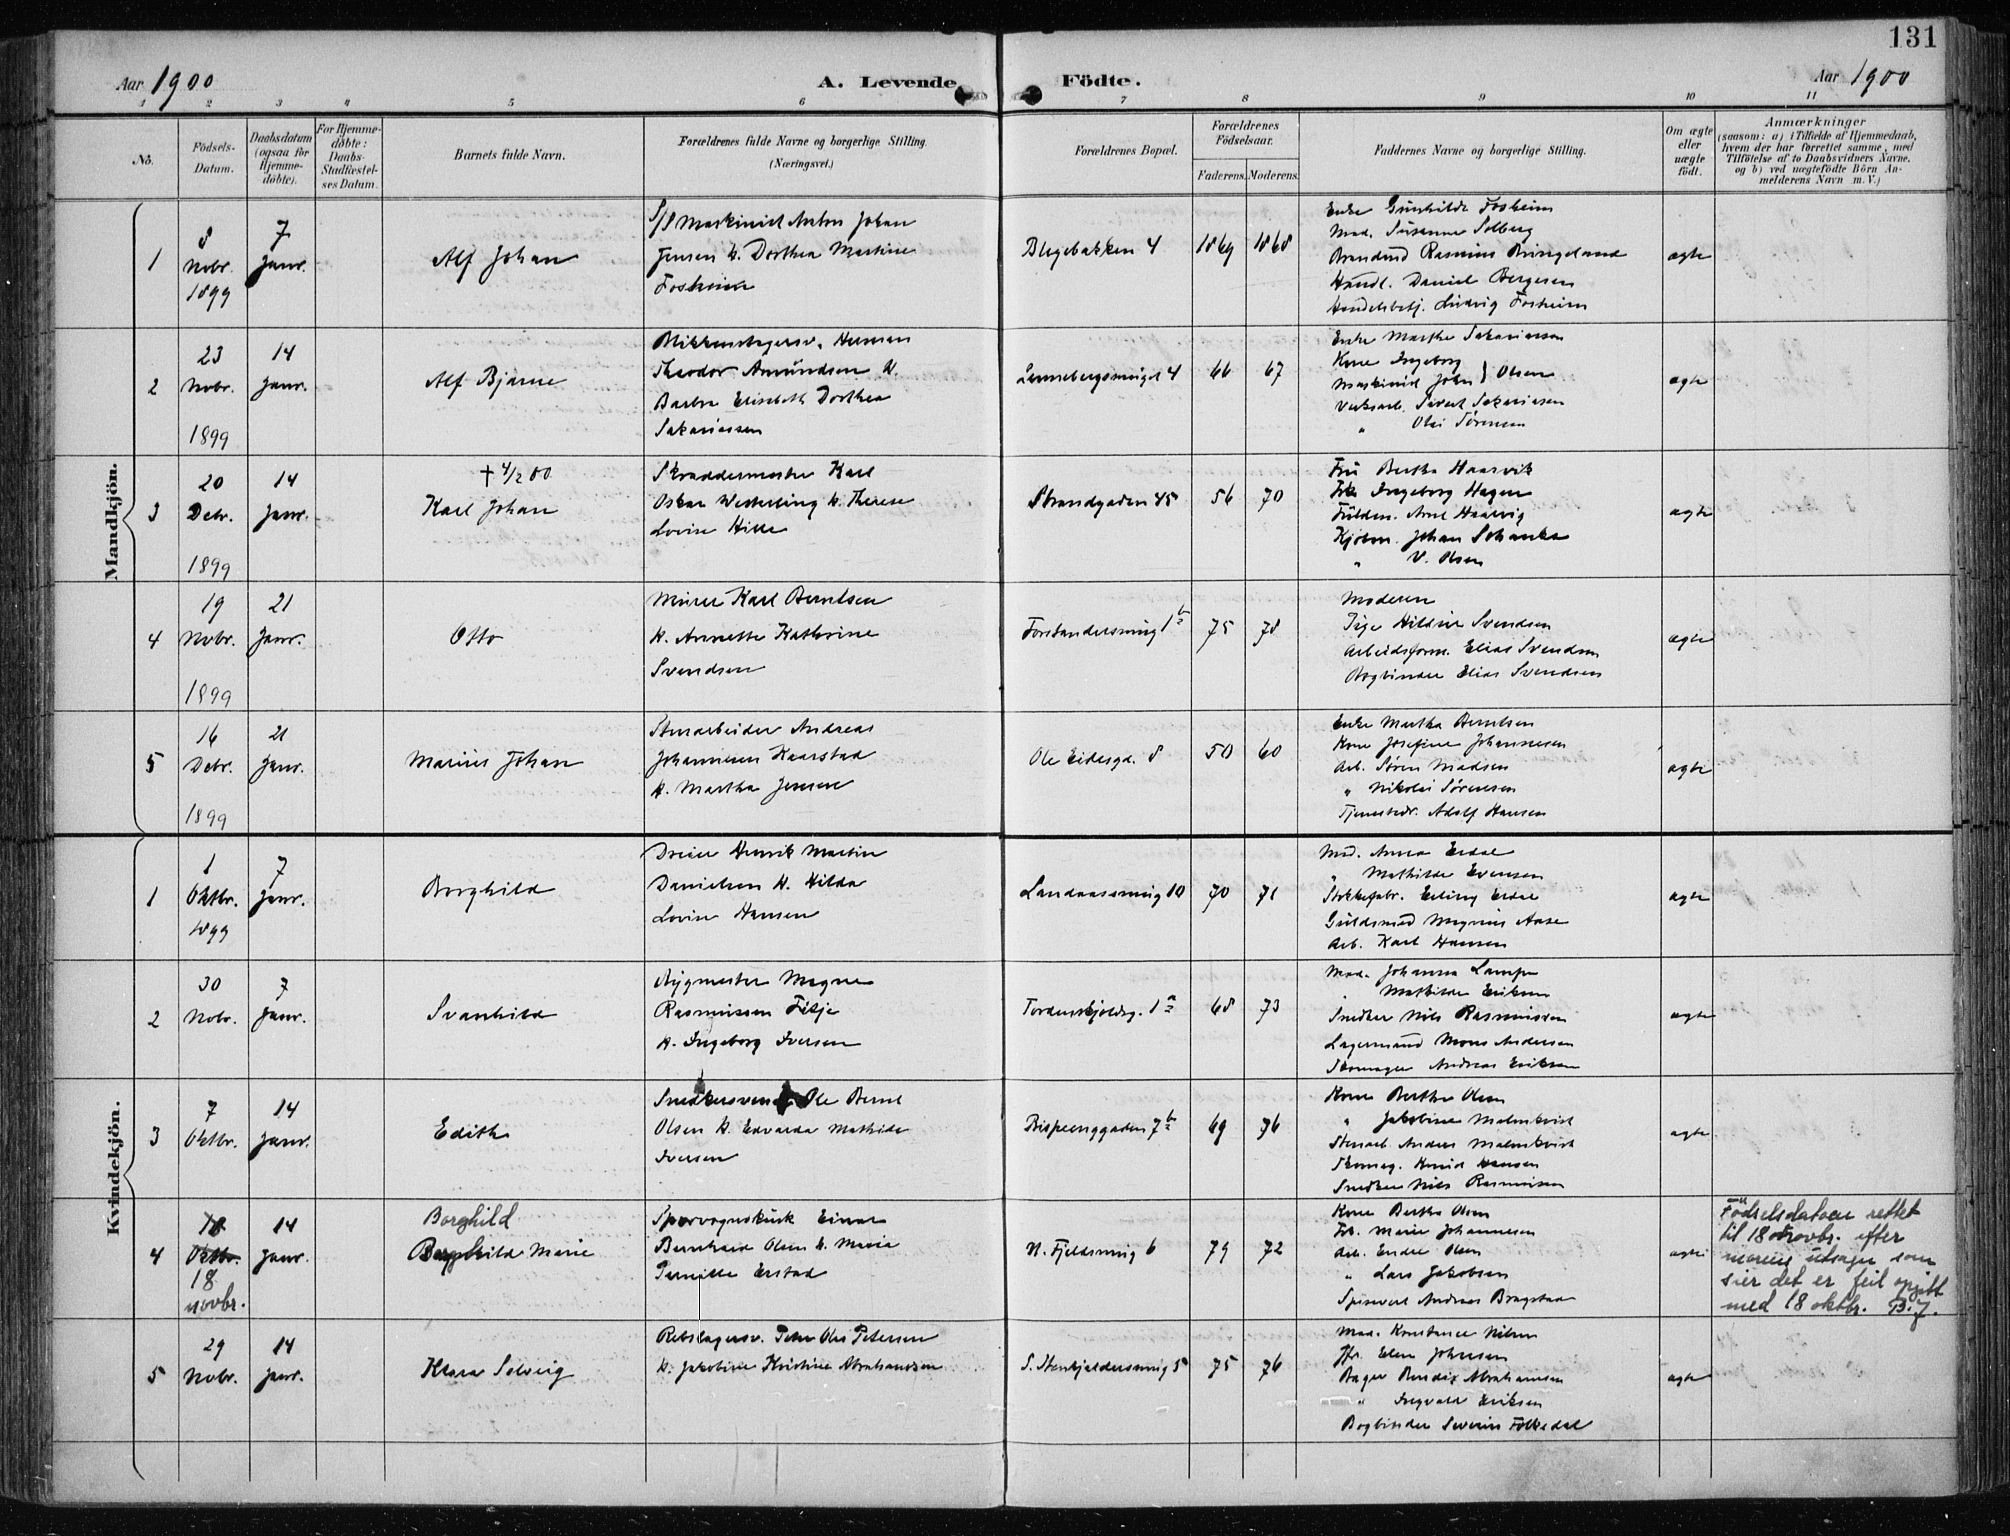 131
Aar 1900
A. Levende
Födte.
Aar 1900
1 2 3 4 5 6 7 8 9 10 11
No.
Födsels-Datum.
Daabsdatum (ogsaa for Hjemme-döbte).
For Hjemme-döbte: Daabs-Stadfæstel-ses Datum.
Barnets fulde Navn.
Forældrenes fulde Navne og borgerlige Stilling.
(Næringsvei.)
Forældrenes Bopæl.
Forældrenes Födselsaar.
Faderens. Moderens.
Faddernes Navne og borgerlige Stilling.
Om ægte eller uægte födt.
Anmærkninger
(saasom: a) i Tilfælde af Hjemmedaab,
hvem der har forrettet samme, med
Tilföielse af to Daabsvidners Navne,
og b) ved uægtefödte Börn An-
melderens Navn m. V.)
Mandkjön.
1
8 Nobr. 1899
7 Janr.
Alf Johan
S/S Maskinist Anton Johan
Jensen h. Dorthea Martine
Fosheim
Blegebakken 4
1869 1868
Enke Gunhilde Fosheim
Mad. Susanne Solberg
Brandmd Rasmus Bringeland
Handl. Daniel Bergesen
Handelsbetj. Ludvig Fosheim
ægte
2
23 Nobr. 1899
14 Janr.
Alf Bjarne
Blikkenslagersv. Herman
Theodor Amundsen h.
Barbra Elisabeth Dorthea
Sakariassen
Lennebergsmuget 4
66 67
Enke Marthe Sakariassen
Kone Ingeborg
Maskinist John } Olsen
Verksarb. Sivert Sakariasen
" Olai Sörensen
ægte
3
20 Debr. 1899
14 Janr.
† 4/2 00
Karl Johan
Skræddermester Karl
Oskar Westerling h. Therese
Lovise Hille
Strandgaden 45
56 70
Fru Bertha Haarvik
Frk Ingeborg Hagen
Fuldm. Arne Haarvig
Kjøbm. Johan Schanke
" V. Olsen
ægte
4
19 Nobr. 1899
21 Janr.
Otto
Murer Karl Berntsen
h. Annette Kathrine
Svendsen
Forstandersmug 1 b
75 78
Moderen
Pige Hildur Svendsen
Arbeidsform. Elias Svendsen
Bogbinder Elias Svendsen
ægte
5
16 Debr. 1899
21 Janr.
Marius Johan
Stenarbeider Andreas
Johannesen Kaarstad
h. Martha Jensen
Ole Eidesgd. 8
50 60
Enke Martha Berntsen
Kone Josefine Johannesen
Arb. Sören Madsen
" Nikolai Sörensen
Tjenestedr. Adolf Hansen
ægte
Kvindekjön.
1
1 Oktbr. 1899
7 Janr.
Borghild
Dreier Henrik Martin
Danielsen h. Hilda
Lovise Hansen
Landaassmug 10
70 71
Mad. Anna Erdal
" Mathilde Evensen
Stokkefabr. Erling Erdal
Guldsmed Magnus Aase
Arb. Karl Hansen
ægte
2
30 Nobr.
7 Janr.
Svanhild
Bygmester Magne
Rasmussen Fitje
h. Ingeborg Iversen
Tordenskjoldsg. 1 a
68 73
Mad. Johanna Lampe
" Mathilde Eriksen
Snedker Nils Rasmussen
Lagermand Mons Andersen
Skomager Andreas Eriksen
ægte
3
7 Oktbr.
14 Janr.
Edith
Snedkersvend Ole Bernt
Olsen h. Edvarda Mathilde
Iversen
Bispeenggaden 7 b
69 76
Kone Berthe Olsen
" Jakobine Malmkvist
Stenarb. Anders Malmkvist
Skomag. Knud Hansen
Snedker Nils Rasmussen
ægte
4
18 Oktbr.
18 novbr.
14 Janr.
Borghild
Borghilda Marie
Sporvognskusk Einar
Bernhard Olsen h. Maria
Pernille Erstad
N. Fjeldsmug 6
79 72
Kone Bertha Olsen
Frk. Marie Johannesen
Arb. Endre Olsen
" Lars Jakobsen
Andreas Bragstad
ægte
Födselsdatoen rettet
til 18 novbr. efter
morens utsagn som
sier det er feil opgitt
med 18 oktbr. B.J.
5
29 Nobr.
14 Janr.
Klara Solveig
Rebslagersv. Peter Olai Petersen
h. Jakobine Kristine Abrahamsen
S. Stenkjeldersmug 5
75 76
Mad. Konstance Nilsen
Jfr. Elen Johnsen
Bager Bendix Abrahamsen
" Ingvald Eriksen
Bogbinder Severin Folkedal
ægte